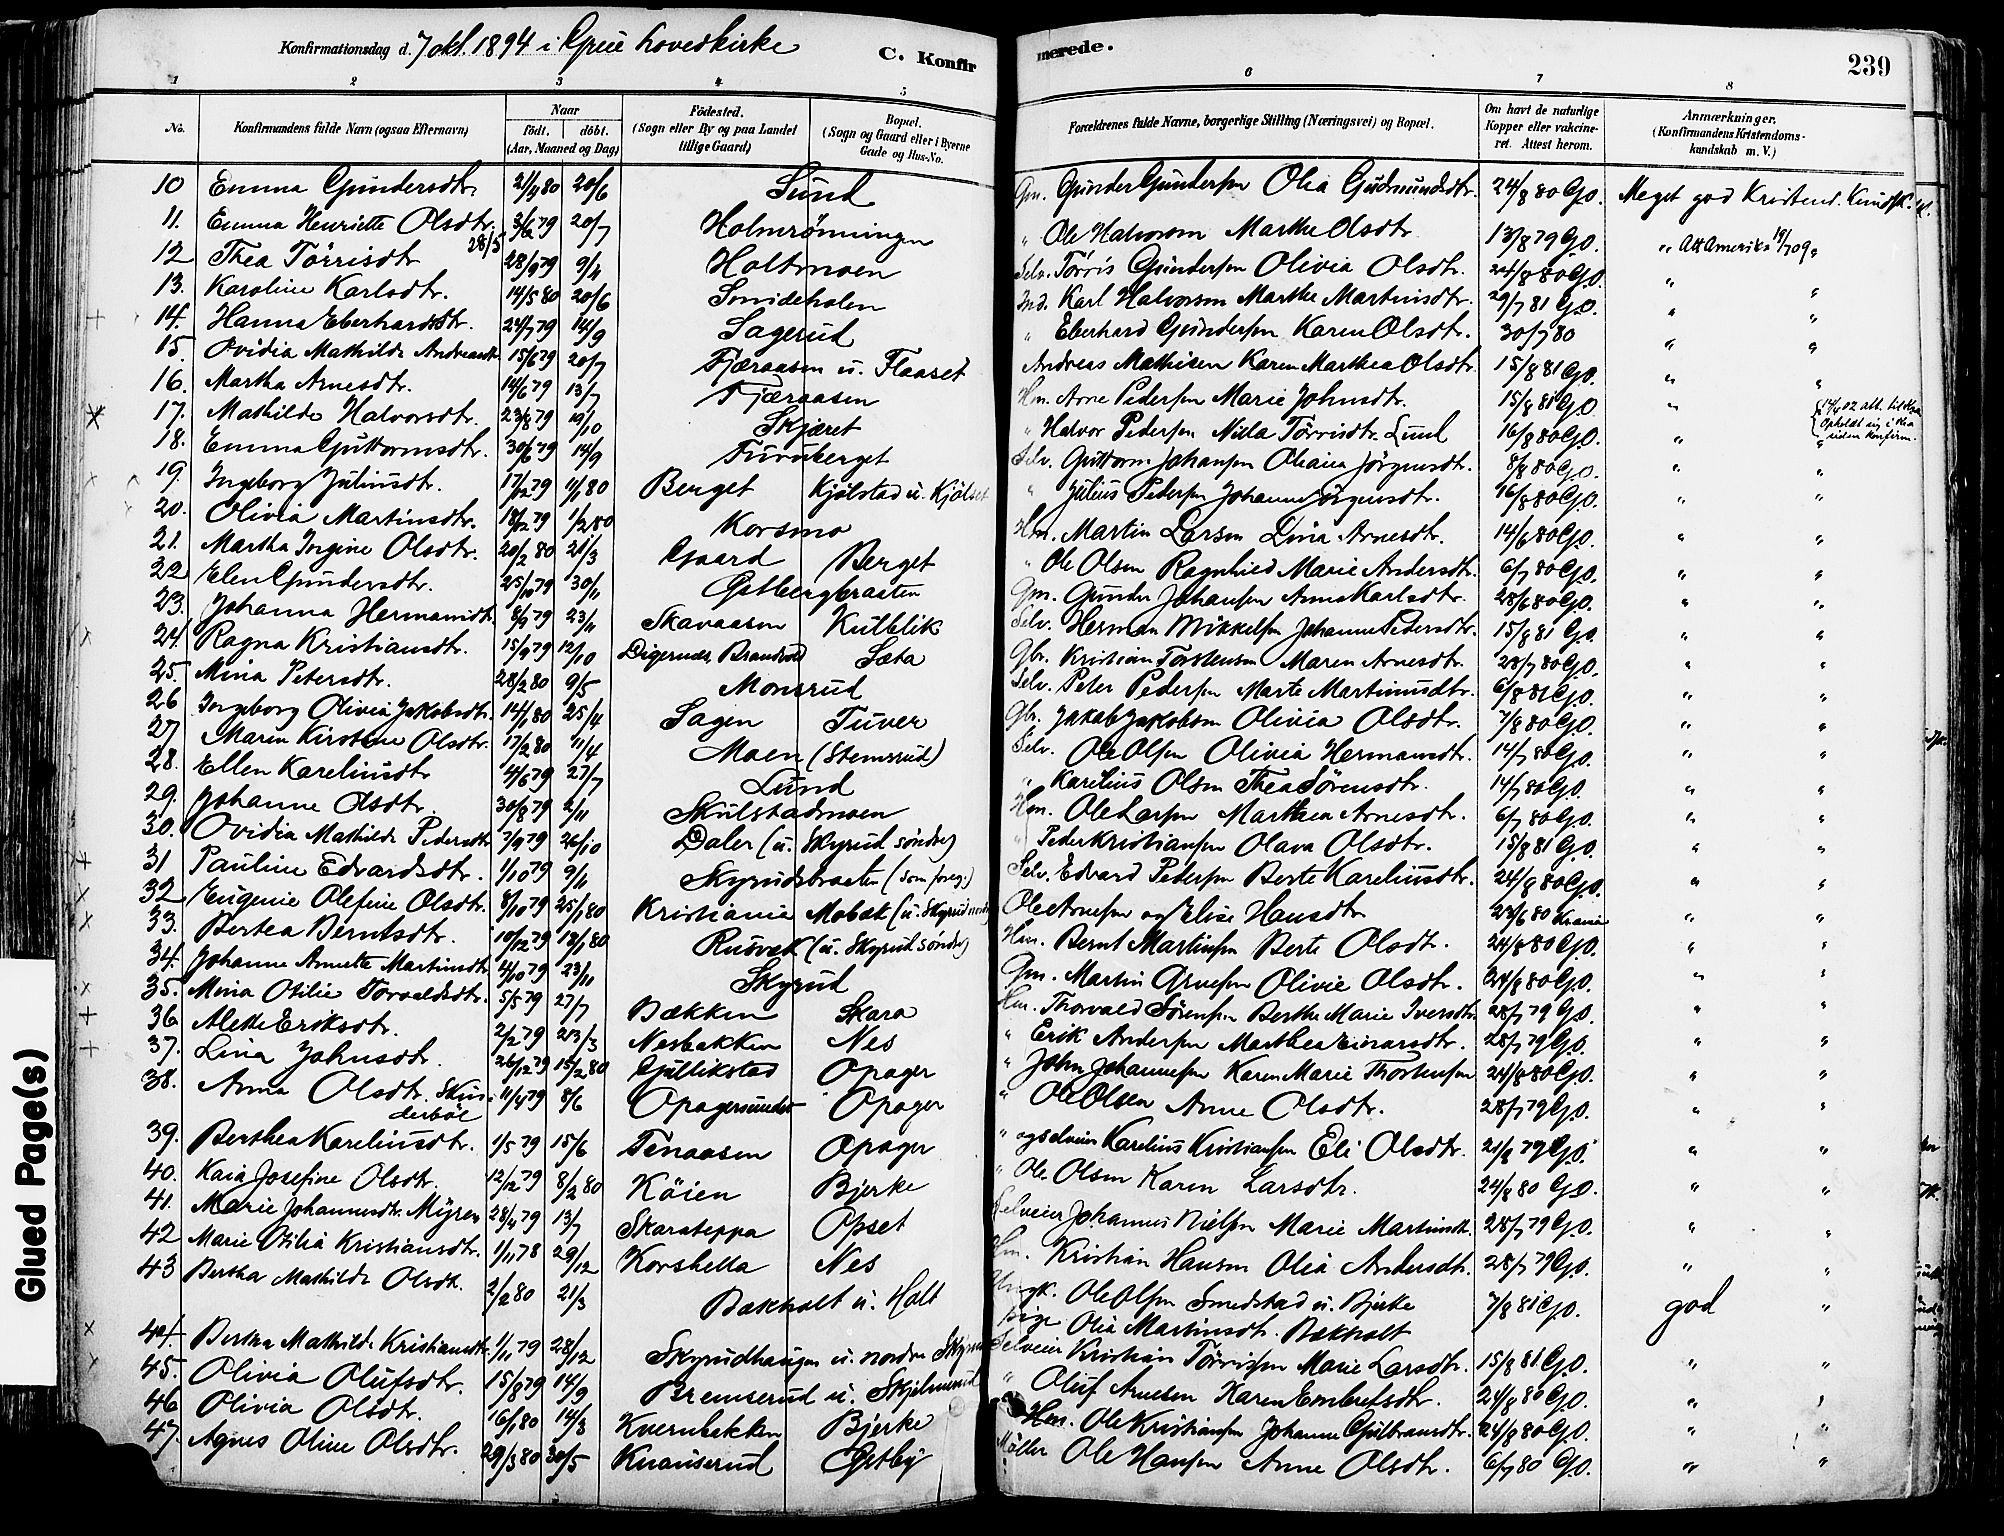 Konfirmationsdag d. 7 okt. 1894 i Grue hovedkirke
C. Konfirmerede.
239
1 2 3 4 5 6 7 8
No. Konfirmandens fulde Navn (ogsaa Efternavn) Naar født. døbt. (Aar, Maaned og Dag) Fødested. (Sogn eller By og paa Landet tillige Gaard) Bopæl. (Sogn og Gaard eller i Byerne Gade og Hus-No. Forældrenes fulde Navne, borgerlige Stilling (Næringsvei) og Bopæl. Om havt de naturlige Kopper eller vakcineret. Attest herom. Anmærkninger. (Konfirmandens Kristendomskundskab m. V.)
10 Emma Gundersdtr. 21/4 80 20/6 Lund Gm. Gunder Gundersen Olia Gudmundsdtr. 24/8 80 G.O. Meget god Kristend. Kundsk.
11. Emma Henriette Olsdtr. 28/5 3/6 79 20/7 Holmrønningen " Ole Halvorsen Marthe Olsdtr. 13/8 79 G.O. " Att Amerika 19/7 09 "
12 Thea Tørrisdtr 28/9 79 9/11 Holtmoen Selv. Tørris Gundersen Olivia Olsdtr. 24/8 80 G.O. " "
13. Karoline Karlsdtr. 14/5 80 20/6 Smideholen Ind. Karl Halvorsen Marthe Martinsdtr. 29/7 81 G.O. " "
14. Hanna Eberhardsdtr. 24/7 79 14/9 Sagerud " Eberhard Gundersen Karen Olsdtr. 30/7 80 " "
15. Ovidia Mathilde Andreasdtr. 15/6 79 20/7 Fjæraasen u. Flaaset Andreas Mathisen Karen Marthea Olsdtr. 15/8 81 G.O. " "
16. Martha Arnesdtr. 14/6 79 13/7 Fjæraasen Hm. Arne Pedersen Marie Johnsdtr. 15/8 81 G.O. "
17. Mathilde Halvorsdtr. 23/8 79 19/10 Skjæret " Halvor Pedersen Nilla Tørrisdtr. Lund 16/8 80 G.O. "
18. Emma Guttormsdtr. 30/6 79 14/9 Furuberget Selv. Guttorm Johansen Oliana Jørgensdtr. 8/8 80 G.O. " "
19. Ingeborg Juliusdtr. 17/12 79 11/1 80 Berget Kjølstad u. Kjølset " Julius Pedersen Johanne Jørgensdtr. 16/8 80 G.O. " "
20. Olivia Martinsdtr. 18/12 79 1/2 80 Korsmo Hm. Martin Larsen Lina Arnesdtr. 14/6 80 G.O. " "
21. Martha Jørgine Olsdtr. 20/2 80 21/3 Gaard Berget " Ole Olsen Ragnhild Marie Andersdtr. 6/7 80 G.O. " "
22 Elen Gundersdtr. 25/10 79 30/11 Østbergbraaten Gm. Gunder Johansen Anna Karlsdtr. 28/6 80 G.O. " "
23. Johanna Hermansdtr. 8/9 79 23/11 Skavaasen Kulblik Selv. Herman Mikkelsen Johanne Pedersdtr. 15/8 81 G.O. " "
24. Ragna Kristiansdtr. 15/9 79 12/10 Digernæs, Brandvold Sæta Gbr. Kristian Torstensen Maren Arnesdtr. 28/7 80 G.O. " "
25. Mina Petersdtr. 28/2 80 9/5 Monsrud Selv. Peter Pedersen Marte Martinusdtr. 6/8 81 G.O. " "
26 Ingeborg Olivia Jakobsdtr. 14/1 80 25/4 Sagen Tuver Gbr. Jakob Jakobsen Olivia Olsdtr. 7/8 80 G.O. " "
27 Maren Kirstine Olsdtr. 17/2 80 11/4 Moen (Stemsrud) Selv. Ole Olsen Olivia Hermansdtr. 14/7 80 G.O. " "
28. Ellen Kareliusdtr 4/6 79 27/7 Lund " Karelius Olsen Thea Sørensdtr. 14/7 80 G.O. " "
29. Johanne Olsdtr. 30/8 79 2/11 Skulstadmoen Hm. Ole Larsen Marthea Arnesdtr. 6/7 80 G.O. " "
30. Ovidia Mathilde Pedersdtr 7/9 79 26/10 Daler (u. Skyrud søndre) " Peder Kristiansen Olava Olsdtr. 15/8 81 G.O. " "
31 Pauline Edvardsdtr. 1/10 79 9/11 Skyrudsbraaten (som foreg.) Selv. Edvard Pedersen Berte Kareliusdtr. 24/8 80 G.O. " "
32 Eugenie Olefine Olsdtr. 8/10 79 25/1 80 Kristiania Mobæk (u. Skyrud nordre Ole Arnesen og Elise Hansdtr 23/6 80 Krania " "
33. Bertea Berntsdtr. 10/12 79 18/1 80 Rusvek (u. Skyrud søndre) Hm. Bernt Martinsen Berte Olsdtr. 24/8 80 G.O. " "
34. Johanne Annette Martinsdtr 4/10 79 23/11 Skyrud Gm. Martin Arnesen Olivie Olsdtr. 24/8 80 G.O. " "
35. Mina Otilie Torvaldsdtr. 5/5 79 27/7 Bækken Skara Hm. Thorvald Sørensen Berthe Marie Iversdtr. 28/7 79 G.O. " "
36 Alette Eriksdtr. 2/2 79 23/3 Nesbakken Nes " Erik Andersen Marthea Einarsdtr. 28/7 79 G.O. " "
37. Lina Johnsdtr. 26/12 79 15/2 80 Gullikstad Opager " John Johannesen Karen Marie Thorstensen 24/8 80 G.O. " "
38. Anna Olsdtr. Skinderbøl 11/4 79 8/6 Opagersundet Opager " Ole Olsen Anne Olsdtr. 28/7 79 G.O. " "
39. Berthea Kareliusdtr. 1/5 79 15/6 Tenaasen Opager " og selveier Karelius Kristiansen Eli Olsdtr. 21/8 79 G.O. " "
40. Kaia Josefine Olsdtr. 12/12 79 8/2 80 Køien Bjerke " Ole Olsen Karen Larsdtr. 24/8 80 G.O. " "
41. Marie Johannesdtr. Myren 28/4 79 13/7 Skarateppa Opset Selveier Johannes Nielsen Marie Martinsdtr. 28/7 79 G.O. " "
42 Marie Otilia Kristiansdtr. 1/11 78 29/12 Korshella Nes Hm. Kristian Hansen Olia Andersdtr. 28/7 79 G.O. " "
43 Bertha Mathilde Olsdtr. 2/2 80 21/3 Bækholt u. Holt Ungk. Ole Olsen Smedstad u. Bjerke Pige Olia Martinsdtr. Bækholt 7/8 81 G.O. god "
44. Bertha Mathilde Kristiansdtr. 1/11 79 28/12 Skyrudhaugen u. nordre Skyrud Selveier Kristian Tørrisen Marie Larsdtr. 15/8 81 G.O. " "
45. Olivia Olufsdtr. 15/8 79 14/9 Bremserud u. Skjelmerud " Oluf Arnesen Karen Embretsdtr. 24/8 80 G.O. " "
46 Olivia Olsdtr. 16/1 80 14/3 Kvernbakken Bjerke Hm. Ole Kristiansen Johanne Gulbrandsdtr. 24/8 80 G.O. " "
47. Agnes Oline Olsdtr. 29/3 80 30/5 Knauserud Østby Møller Ole Hansen Anne Olsdtr. 6/7 80 G.O. " "
Glued Page(s)